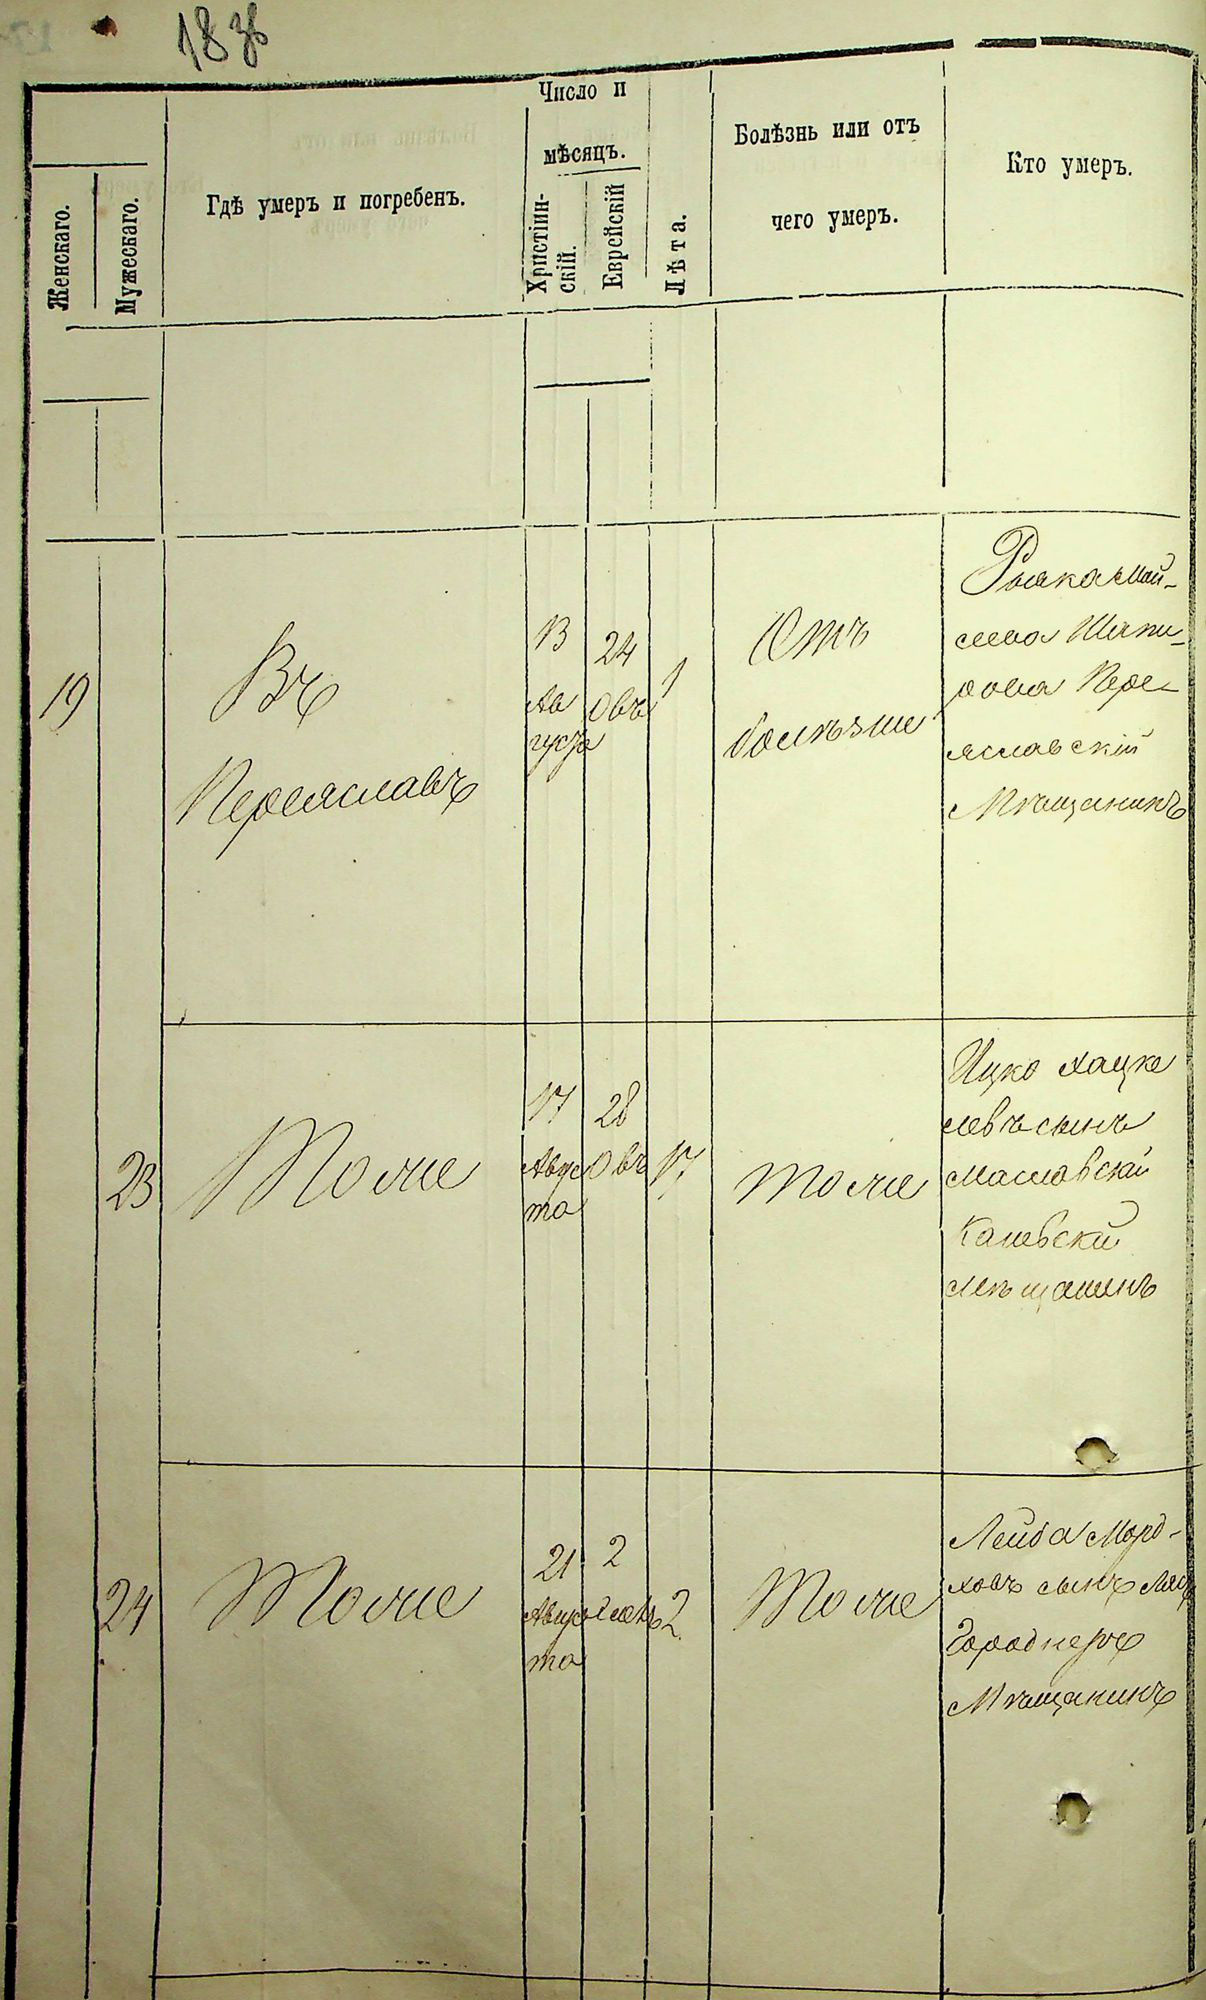 1836
Женскаго.
Мужескаго.
Гдѣ умеръ и погребенъ.
Число и
мѣсяцъ.
Христіин-
скій.
Еврейскій
Лѣта.
Болѣзнь или отъ
чего умеръ.
Кто умеръ.
19
Въ
Переяславѣ
13
Ав
густа
24
Овъ
1
Отъ
болѣзни
Рыжка Мош-
лева Шапи-
рова Пере-
яславскій
Мѣщанинъ
23
Тоже
17
Авгус
та
28
Овъ
17
Тоже
Ицко Хацке
левъ сынъ
Масловскій
Каневскій
мѣщанинъ
24
Тоже
21
Авгус
та
2
Элюль
2
Тоже
Лейба Морд-
ховъ сынъ
Городнеръ
Мѣщанинъ